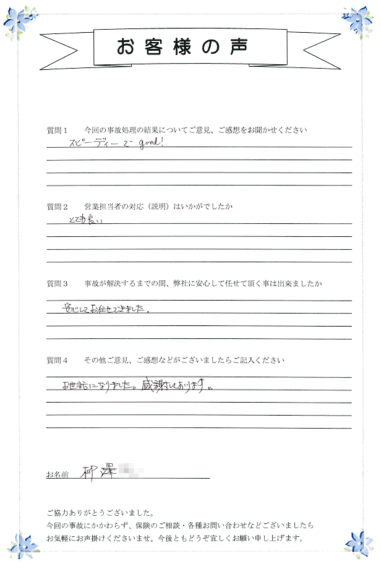 お客様の声
質問1 今回の事故処理の結果についてご意見、ご感想をお聞かせください
スピーディーで good!
質問2 営業担当者の対応（説明）はいかがでしたか
とても良い
質問3 事故が解決するまでの間、弊社に安心して任せて頂く事は出来ましたか
安心してお任せできました。
質問4 その他ご意見、ご感想などがございましたらご記入ください
お世話になりました。感謝しております。
お名前 柳澤
ご協力ありがとうございました。
今回の事故にかかわらず、保険のご相談・各種お問い合わせなどございましたら
お気軽にお声掛けくださいませ。今後ともどうぞ宜しくお願い申し上げます。